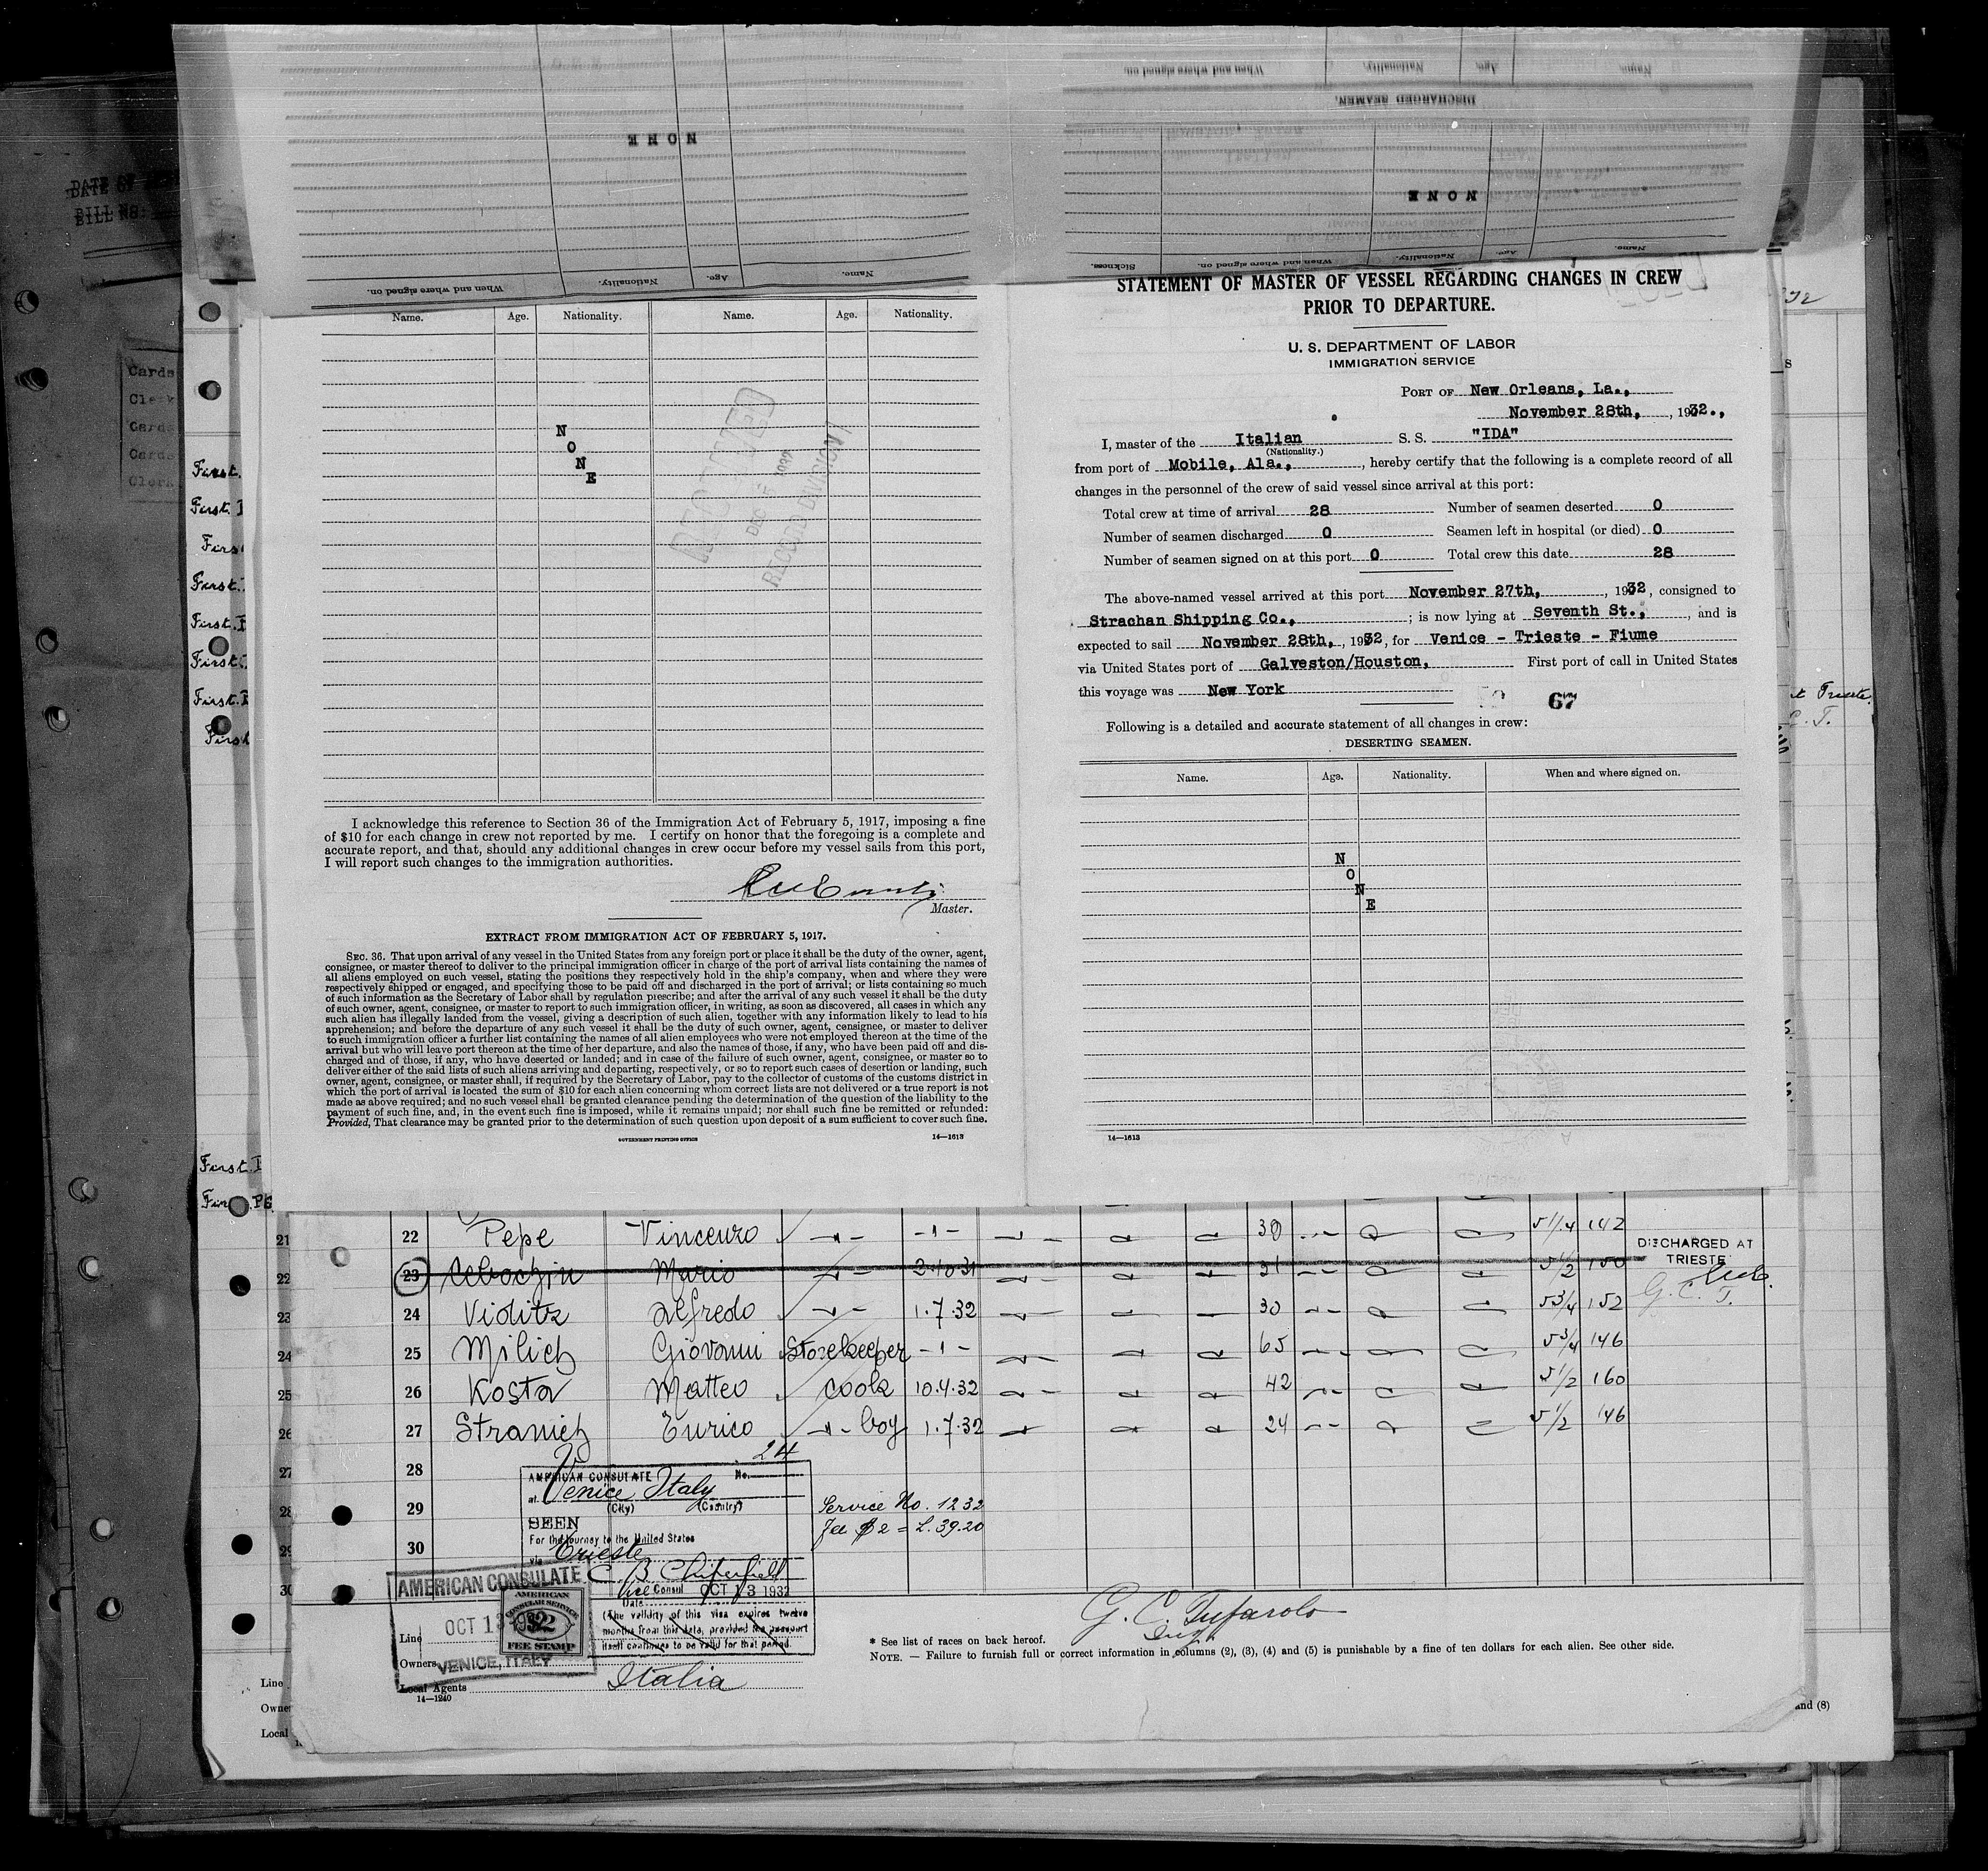 NONE
When and where signed on.
Nationality.
Age.
Name.
Name.
Age.
Nationality.
When and where signed on.
DISCHARGED SEAMEN.
NONE
Name.
Age.
Nationality.
When and where signed on.
Sickness.
DATE OF
BILL NO:
Cards
Clerk
Cards
Cards
Clerk
First.
First.
First
First.
First.
First.
First.
First
First.
Name. Age. Nationality. Name. Age. Nationality.
N
O
N
E
RECEIVED
RECORD DIVISION
I acknowledge this reference to Section 36 of the Immigration Act of February 5, 1917, imposing a fine
of $10 for each change in crew not reported by me. I certify on honor that the foregoing is a complete and
accurate report, and that, should any additional changes in crew occur before my vessel sails from this port,
I will report such changes to the immigration authorities.
Master.
EXTRACT FROM IMMIGRATION ACT OF FEBRUARY 5, 1917.
SEC. 36. That upon arrival of any vessel in the United States from any foreign port or place it shall be the duty of the owner, agent,
consignee, or master thereof to deliver to the principal immigration officer in charge of the port of arrival lists containing the names of
all aliens employed on such vessel, stating the positions they respectively hold in the ship's company, when and where they were
respectively shipped or engaged, and specifying those to be paid off and discharged in the port of arrival; or lists containing so much
of such information as the Secretary of Labor shall by regulation prescribe; and after the arrival of any such vessel it shall be the duty
of such owner, agent, consignee, or master to report to such immigration officer, in writing, as soon as discovered, all cases in which any
such alien has illegally landed from the vessel, giving a description of such alien, together with any information likely to lead to his
apprehension; and before the departure of any such vessel it shall be the duty of such owner, agent, censignee, or master to deliver
to such immigration officer a further list containing the names of all alien employees who were not employed thereon at the time of the
arrival but who will leave port thereon at the time of her departure, and also the names of those, if any, who have been paid off and dis-
charged and of those, if any, who have deserted or landed; and in case of the failure of such owner, agent, consignee, or master so to
deliver either of the said lists of such aliens arriving and departing, respectively, or so to report such cases of desertion or landing, such
owner, agent, consignee, or master shall, if required by the Secretary of Labor, pay to the collector of customs of the customs district in
which the port of arrival is located the sum of $10 for each alien concerning whom correct lists are not delivered or a true report is not
made as above required; and no such vessel shall be granted clearance pending the determination of the question of the liability to the
payment of such fine, and, in the event such fine is imposed, while it remains unpaid; nor shall such fine be remitted or refunded:
Provided, That clearance may be granted prior to the determination of such question upon deposit of a sum sufficient to cover such fine.
GOVERNMENT PRINTING OFFICE 14—1613
STATEMENT OF MASTER OF VESSEL REGARDING CHANGES IN CREW
PRIOR TO DEPARTURE.
U. S. DEPARTMENT OF LABOR
IMMIGRATION SERVICE
PORT OF New Orleans, La.,
November 28th, , 1932.,
I, master of the Italian S. S. "IDA"
(Nationality.)
from port of Mobile, Ala., , hereby certify that the following is a complete record of all
changes in the personnel of the crew of said vessel since arrival at this port:
Total crew at time of arrival 28 Number of seamen deserted 0
Number of seamen discharged 0 Seamen left in hospital (or died) 0
Number of seamen signed on at this port 0 Total crew this date 28
The above-named vessel arrived at this port November 27th, , 1932, consigned to
Strachan Shipping Co., ; is now lying at Seventh St., , and is
expected to sail November 28th, , 1932, for Venice - Trieste - Fiume
via United States port of Galveston/Houston, First port of call in United States
this voyage was New York
67
Following is a detailed and accurate statement of all changes in crew:
DESERTING SEAMEN.
Name. Age. Nationality. When and where signed on.
N
O
N
E
14—1613
22 Pepe Vincenzo -"- -1- 30 5 1/4 142
23 Mario 2.10.31 31 5 1/2 150
DISCHARGED AT
TRIESTE
G. C. T.
24 Viditz Alfredo -"- 1.7.32 30 5 3/4 152
25 Milich Giovanni Storekeeper -1- 65 5 3/4 146
26 Kosta Matteo cook 10.4.32 42 5 1/2 160
27 Stranich Enrico -"- boy 1.7.32 24 5 1/2 146
28
29
30
21
22
23
24
25
26
27
28
29
30
AMERICAN CONSULATE No. 24
at Venice Italy
(City) (Country)
SEEN
For the journey to the United States
via Trieste
C B Chiperfield
Vice Consul OCT 13 1932
Date
(The validity of this visa expires twelve
months from this date, provided the passport
itself continues to be valid for that period.
Service No. 1232
Fee $2 = L. 39.20
AMERICAN CONSULATE
OCT 13 1932
VENICE, ITALY
AMERICAN
CONSULAR SERVICE
$2
FEE STAMP
Line
Owners
Local Agents Italia
14—1240
G. C. Tufarolo
* See list of races on back hereof.
NOTE. — Failure to furnish full or correct information in columns (2), (3), (4) and (5) is punishable by a fine of ten dollars for each alien. See other side.
Line
Owner
Local
and (8)